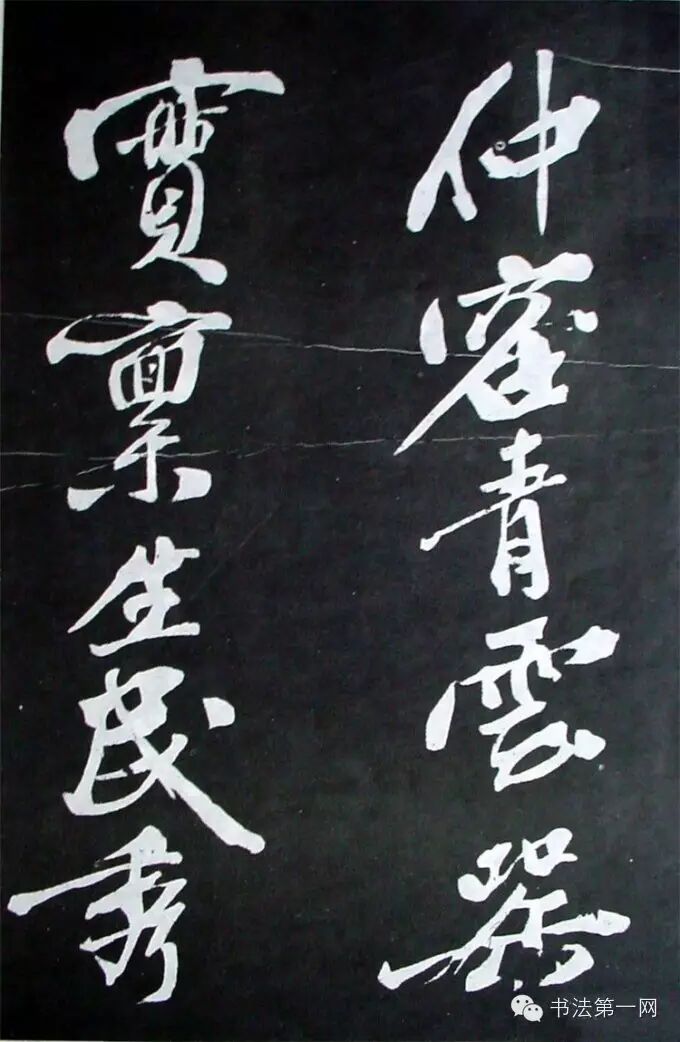 仲青雲器
實禀生民秀
书法第一网